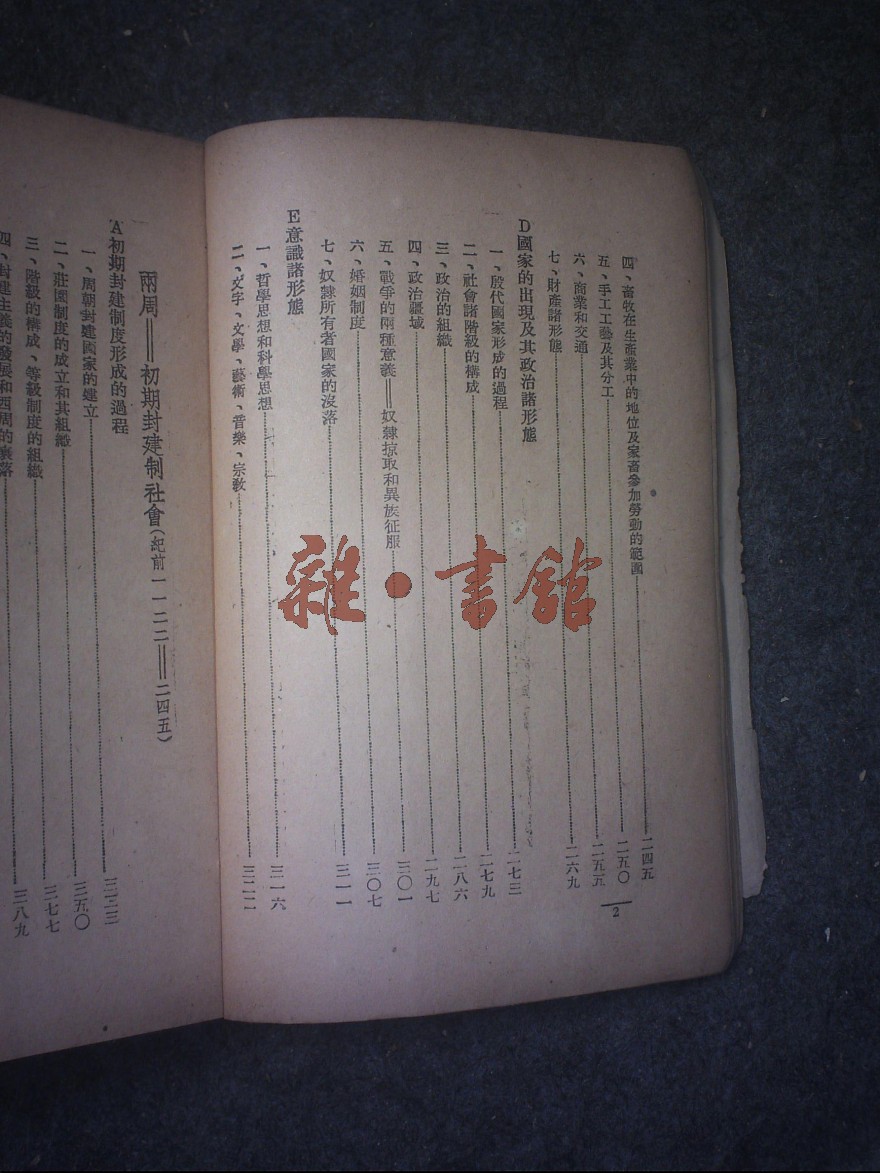 四、畜牧在生產業中的地位及家畜參加勞動的範圍……二四五
五、手工工藝及其分工……二五〇
六、商業和交通……二五五
七、財產諸形態……二六九
D國家的出現及其政治諸形態
一、殷代國家形成的過程……二七三
二、社會諸階級的構成……二七九
三、政治的組織……二八六
四、政治疆域……二九七
五、戰爭的兩種意義——奴隸掠取和異族征服……三〇一
六、婚姻制度……三〇七
七、奴隸所有者國家的沒落……三一一
E意識諸形態
一、哲學思想和科學思想……三一六
二、文字、文學、藝術、音樂、宗教……三二二
2
兩周——初期封建制社會(紀前一一二二——二四五)
A初期封建制度形成的過程
一、周朝封建國家的建立……三三三
二、莊園制度的成立和其組織……三五〇
三、階級的構成、等級制度的組織……三七七
四、封建主義的發展和西周的衰落……三八九
雜·書館